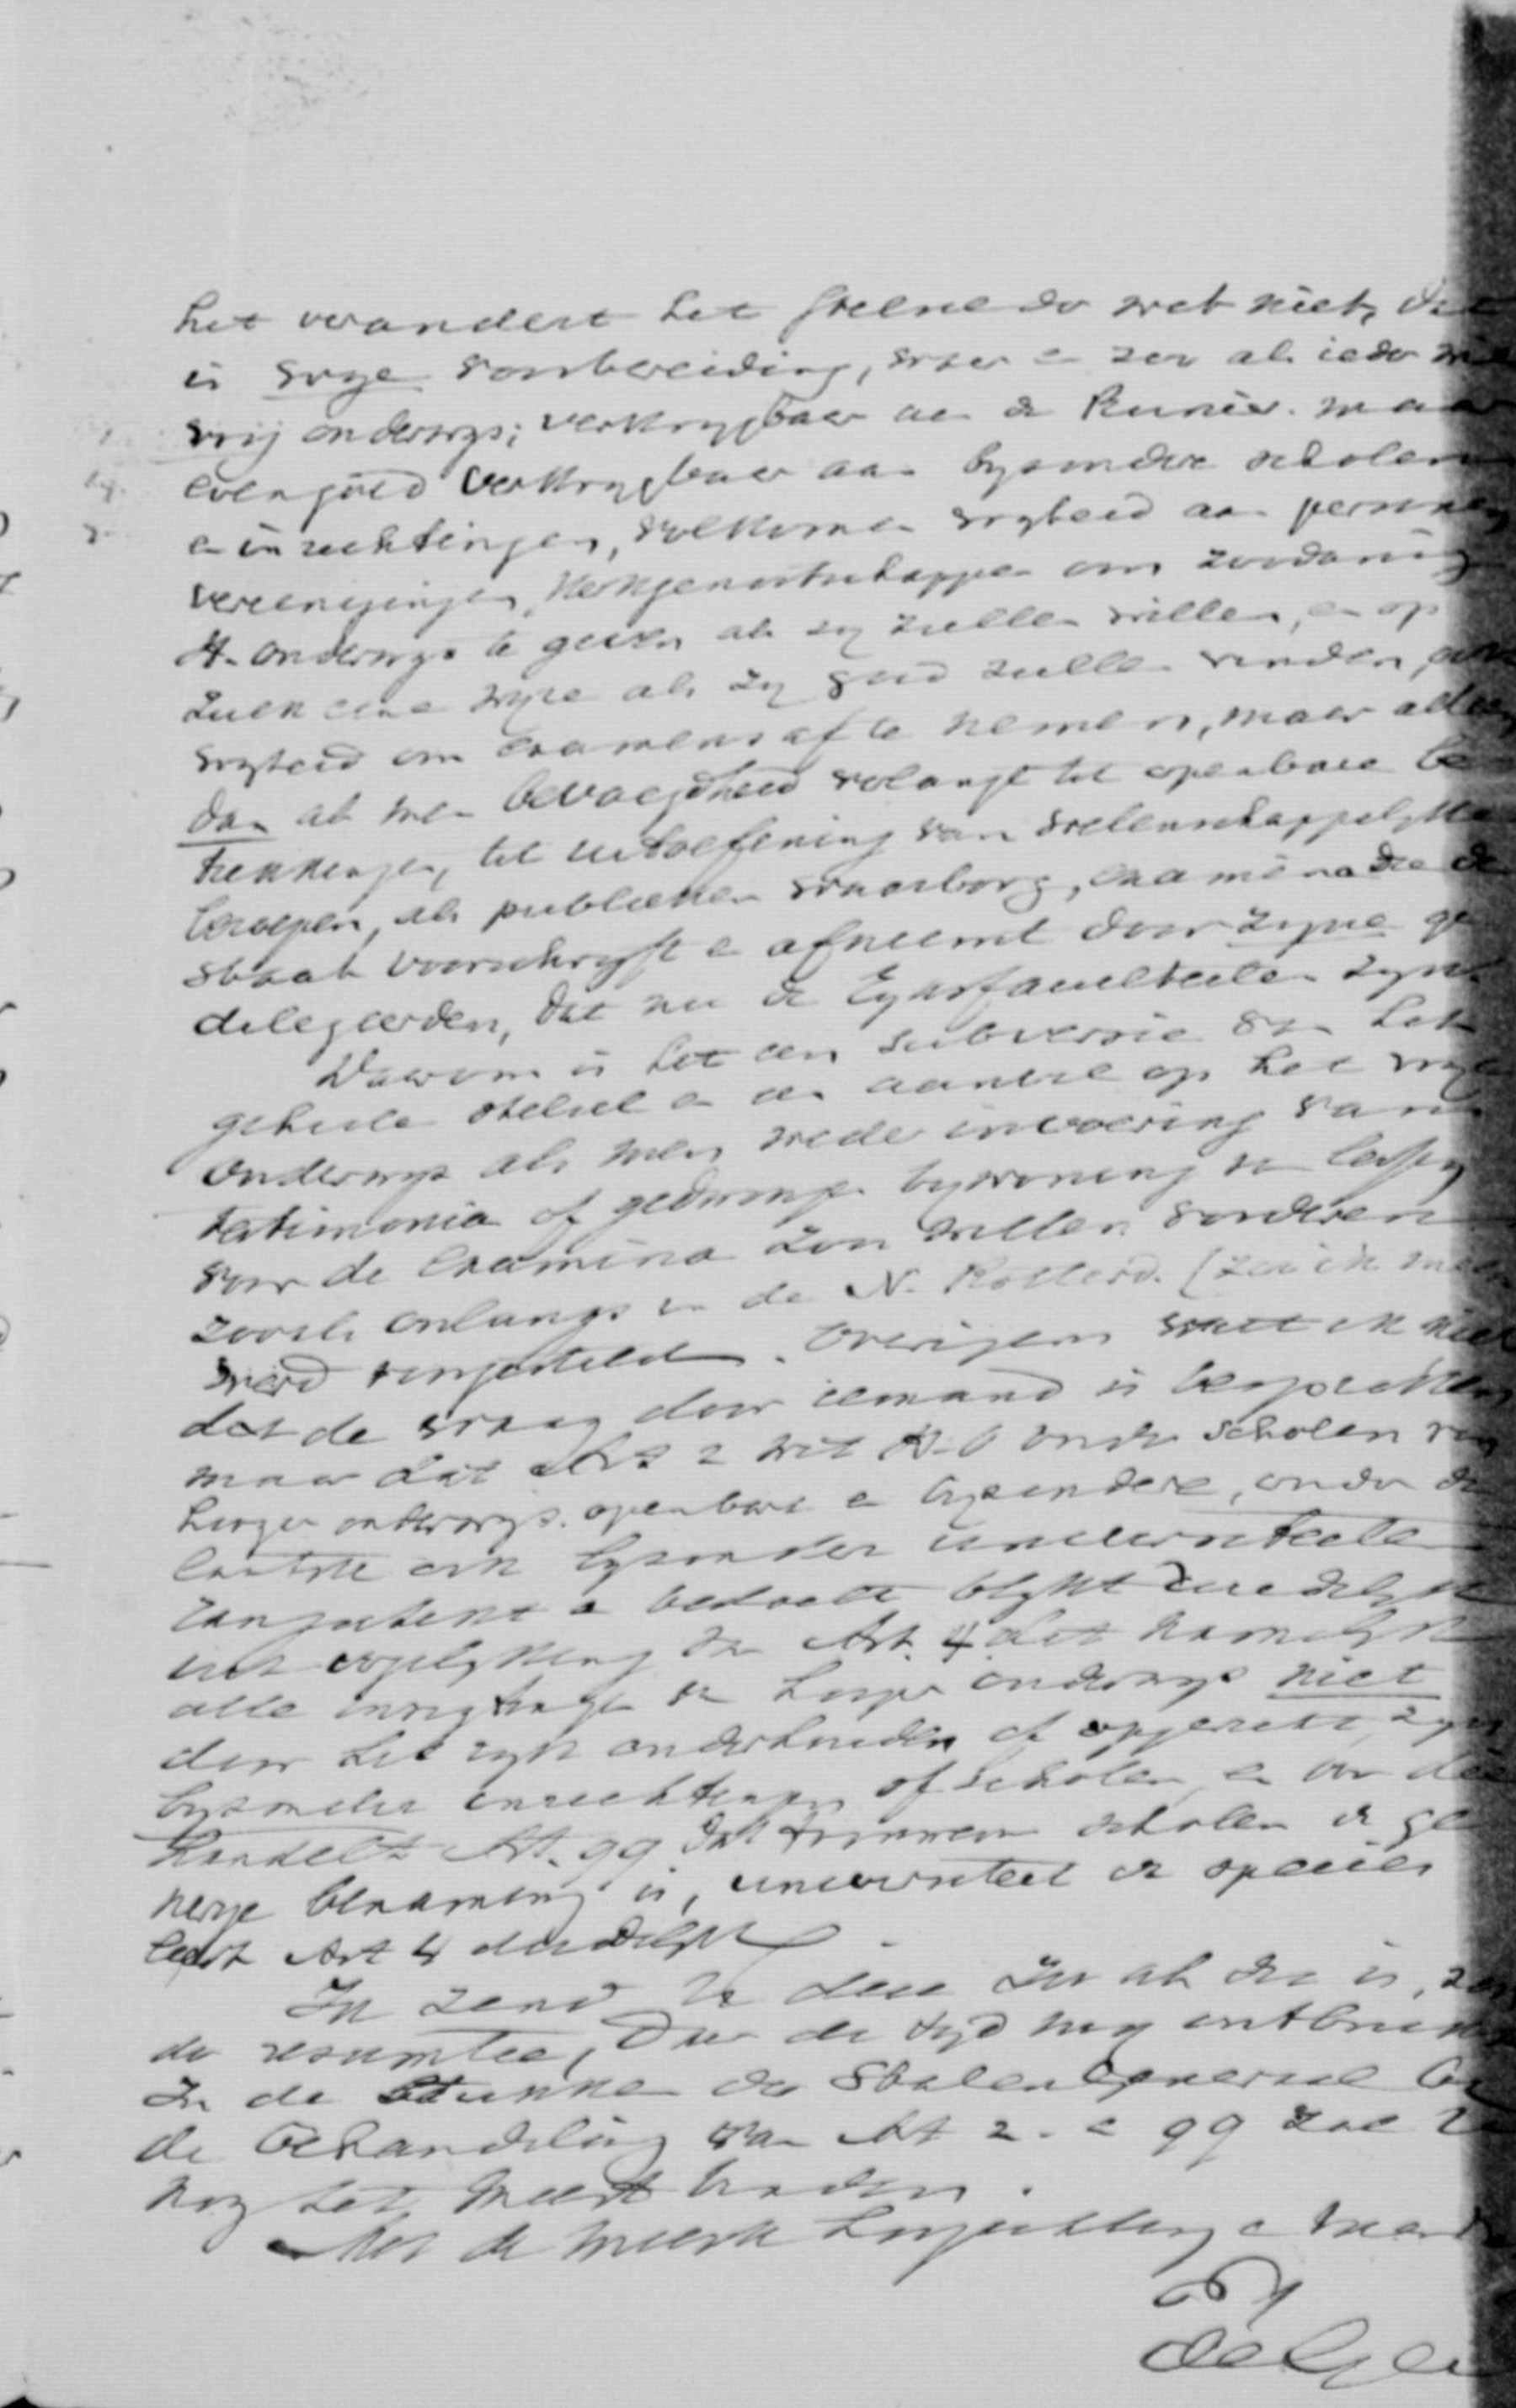 het verandert het geheel der wet niet, dat
is vrije voorbereiding, voor en zoo als ieder wil
vrij onderwijs; verkrijgbaar aan de Runiv. maar
evengoed verkrijgbaar aan byzondere scholen
en inrichtingen, volkomen vryheid aan personen
vereenigingen, kerkgenootschappen om zoodanig
H. onderwys te geven als zy zullen willen, en op
zulk eene wyze als zy goed zullen vinden,
vryheid om examens af te nemen, maar alleen
dan als men bevoegdheid verlangt tot openbare be
trekkingen, tot uitoefening van wetenschappelyke
beroepen, als publieken waarborg, examina die de
staat voorschryft en afneemt door zyne ge
delegeerden, dat nu de Ryksfaculteiten zyn.
Daarom is het een subversie van het
geheele stelsel en een aanval op het vrye
onderwys als men weder invoering van
testimonia of gedwongen bywoning van lessen
voor de examina zou willen vorderen
zooals onlangs in de N. Rotterd. (zei ik meen
werd voorgesteld. Overigens weet ik niet
dat de vraag door iemand is besproken
maar dat Art 2 wet H.O onder scholen van
hooger onderwys. openbare en byzondere, onder de
laatste ook byzondere universiteiten
en bedoelt blykt duidelyk
uit vergelyking van Art. 4. dat namelyk
alle inrigtingen van hooger onderwys niet
door het ryk onderhouden of opgericht, zyn
byzondere inrichtingen of scholen, en van die
handelt Art. 99 dat scholen de ge
nerye benaming is, universiteit de species
leert Art 4 duidelyk.
Ik zend U deze zoo als die is, zon
der resumtie, daar de tyd my ontbreekt
In de stukken der Staten Generaal by
de behandeling van Art 2. en 99 zal U
nog het meest vinden.
Met de meeste hoogachting en